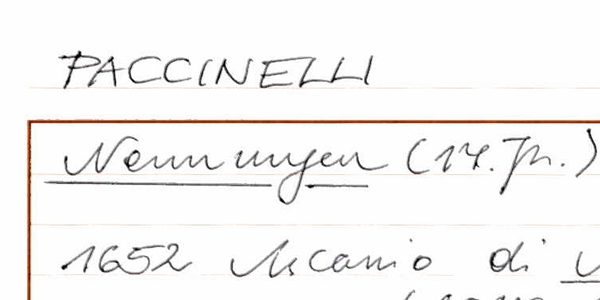 PACCINELLI
Nennungen (17. Jh.)
1652 Ascanio di